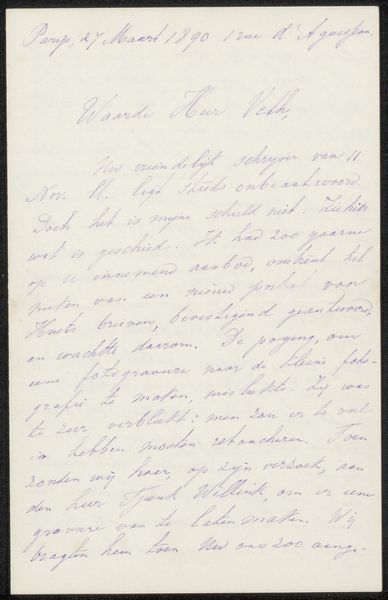 Parijs, 27 Maart 1890 1 rue d'Aguesseau.
Waarde Heer Veth,
Uw vriendelijk schrijven van 11
Nov. ll. ligt steeds onbeantwoord.
Doch het is mijne schuld niet. Ziehier
wat is geschied. Ik had zoo gaarne
op u innemend aanbod, omtrent het
maken van een nieuw portret van
Huets brieven, bevestigend geantwoord,
en wachtte daarom. De poging, om
eene fotogravure naar de kleine foto-
grafie te maken, mislukte. Zij was
te zeer verbleekt: men zou er te veel
in hebben moeten retoucheren. Toen
zonden wij haar, op zijn verzoek, aan
den heer Tjeenk Willink, om er eene
gravure van te laten maken. Wij
vragten hem toen Uw ons zoo aange-